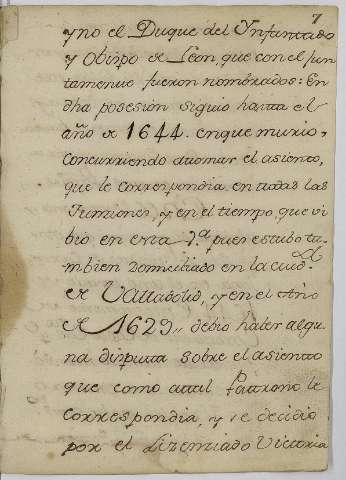 7
y no el Duque del Ynfantado
y Obispo de Leon, que con el jun
tamente fueron nombrados: En
dha posesion siguio hasta el
año de 1644. en que murio,
Concurriendo atomar el asiento,
que le correspondia en todas las
Funciones, y en el tiempo que vi
bio en esta V.ª pues estubo ta
mbien Domiciliado en la ciud.d
de Valladolid, y en el Año
de 1629,, debio haber algu
na disputa sobre el asiento
que como attal Patrono le
correspondia, y se decidio
por el Lizenciado Victoria